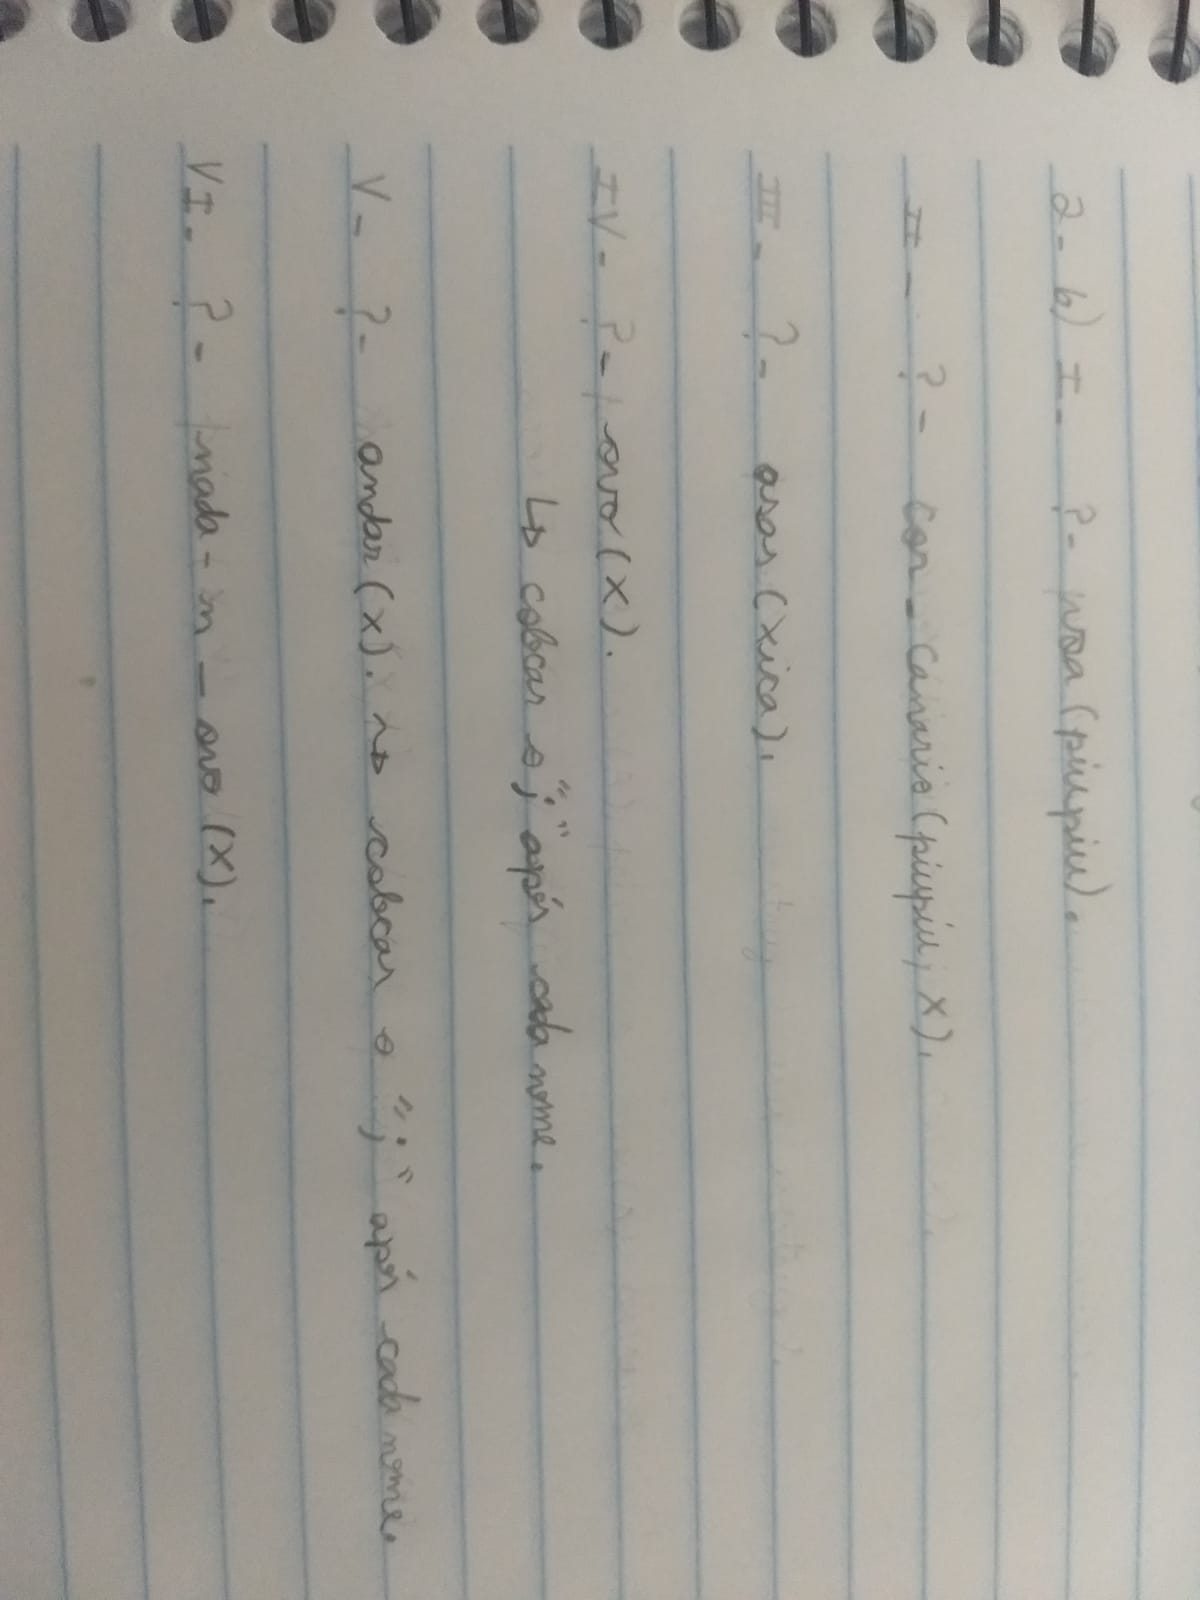 2- b) I- ?- voa(piupiu).
II- ?- cor_canario(piupiu, X).
III- ?- asas(xica).
IV- ?- ovo(X).
↳ colocar o ";" após cada nome.
V- ?- andar(X). ~> colocar o ";" após cada nome.
VI- ?- nada-n_ovo(X).